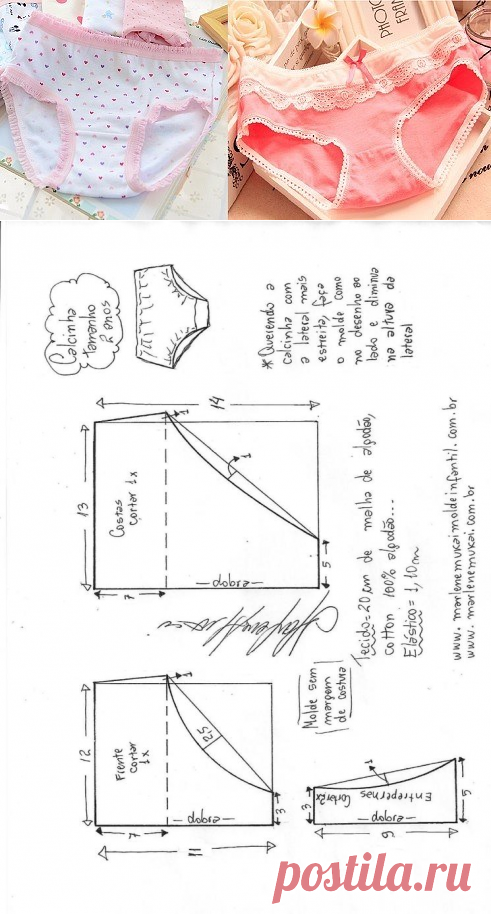 PHOTO
FRAM
Calcinha
tamanho
2 anos
*Querendo a
calcinha com
a lateral mais
estreita, faça
o molde como
no desenho ao
lado e diminua
na altura da
lateral
14
13
Costas
cortar 1x
7
1
1
5
—dobra—
Tecido=20 cm de malha de algodão,
cotton 100% algodão...
Elástico = 1,10 cm
www.marlenemukaimoldeinfantil.com.br
www.marlenemukai.com.br
12
Frente
cortar
1x
7
1
2,5
3
—dobra—
11
Molde sem
margem
de costura
3
Entrepernas
Cortar 2x
1
—dobra—
5
9
postila.ru